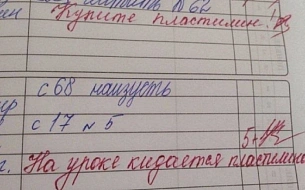 №62
Купите пластилин!
с 68 наизусть
с 17 № 5
5+
На уроке кидается пластилином